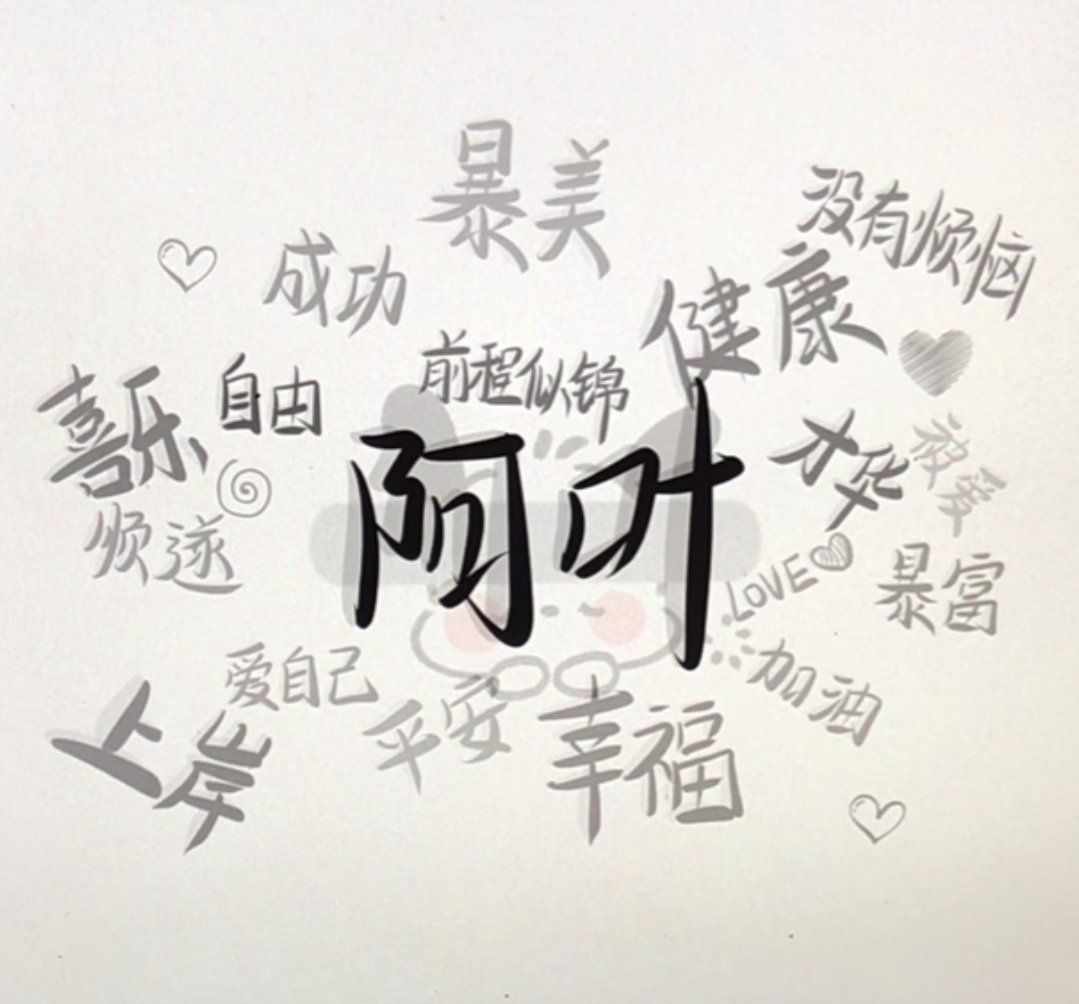 暴美
没有烦恼
成功
健康
前程似锦
喜乐
自由
阿叶
才华
被爱
顺遂
LOVE
暴富
爱自己
加油
上岸
平安
幸福